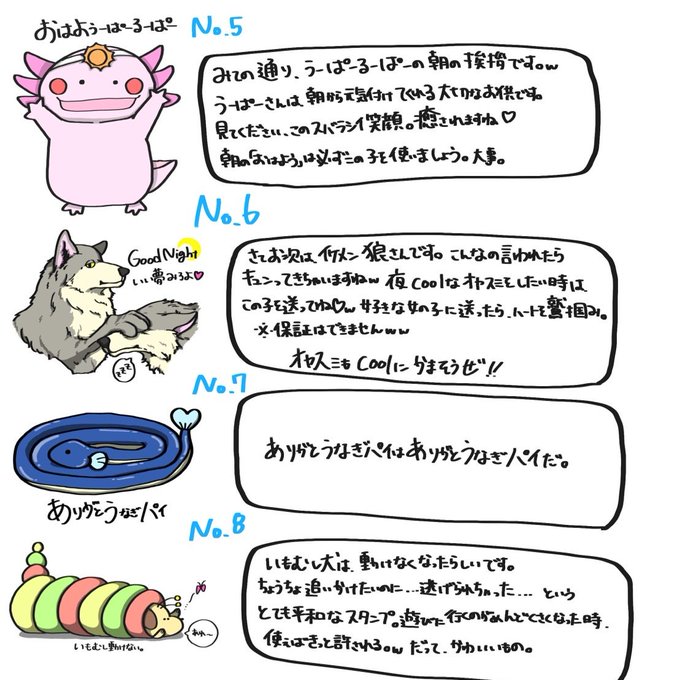 おはよううーぱーるーぱー
No.5
みての通り、うーぱーるーぱーの朝の挨拶です。w
うーぱーさんは、朝から元気付けてくれる大切なお供です。
見てください、このスバラシイ笑顔。癒されますね♡
朝の「おはよう」は必ずこの子を使いましょう。大事。
No.6
Good Night
いい夢みろよ♡
zzz
さてお次は、イケメン狼さんです。こんなの言われたら
キュンってきちゃいますねw 夜coolなオヤスミをしたい時は
この子を送ってね♡w 好きな女の子に送ったら、ハートを鷲掴み。
※保証はできませんww
オヤスミもCoolにかまそうぜ!!
No.7
ありがとうなぎパイ
ありがとうなぎパイはありがとうなぎパイだ。
No.8
あれ〜
いもむし動けない。
いもむし犬は、動けなくなったらしいです。
ちょうちょ追いかけたいのに…逃げられちゃった…という
とても平和なスタンプ。遊びに行くのがめんどくさくなった時、
使えばきっと許される。w だって、かわいいもの。